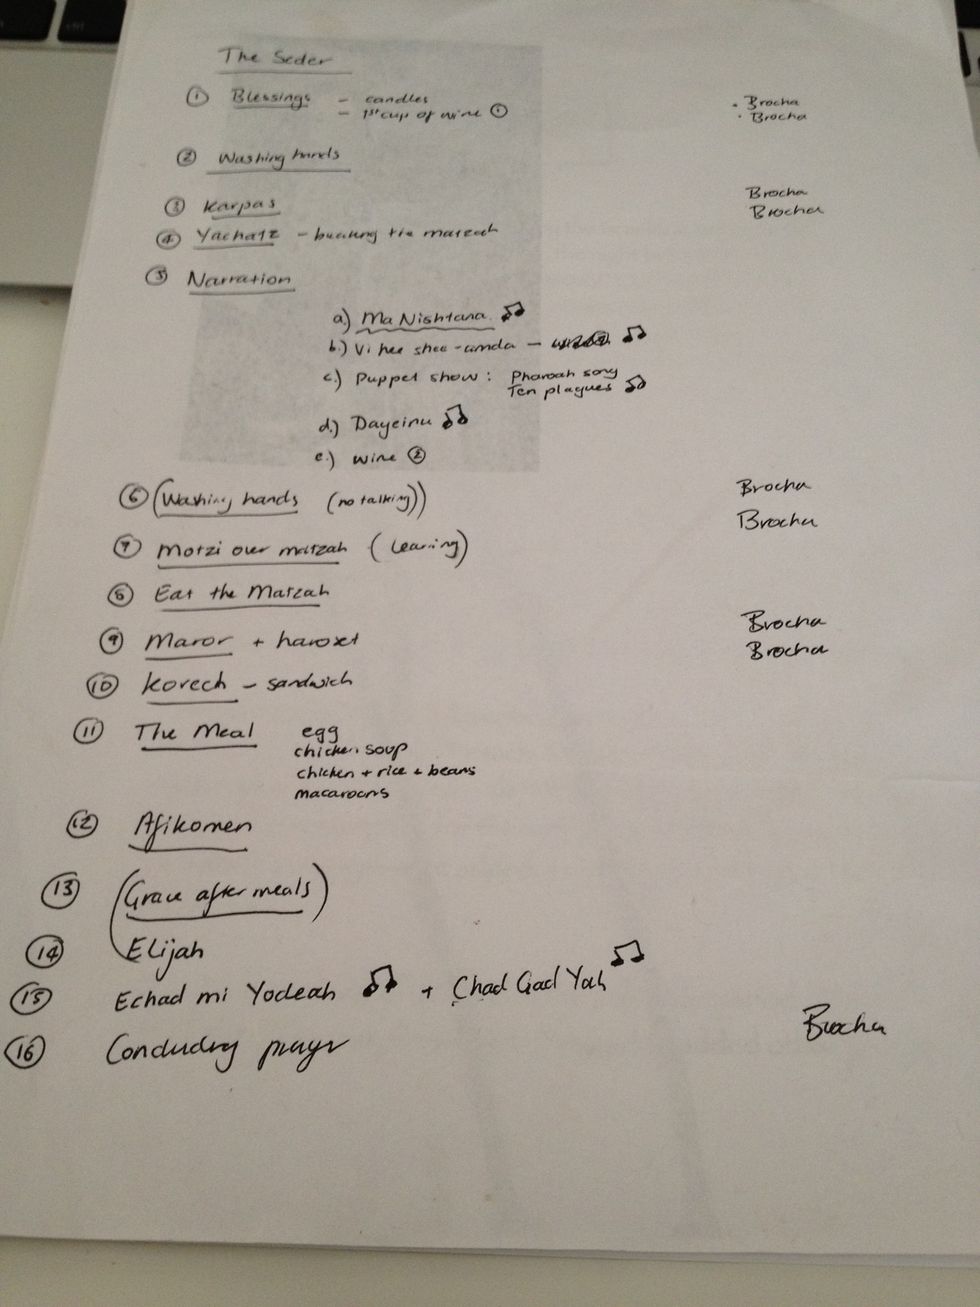 The Seder
① Blessings - candles • Brocha
- 1st cup of wine ① • Brocha
② Washing hands
③ Karpas Brocha
Brocha
④ Yachatz - breaking the matzah
⑤ Narration
a) Ma Nishtana ♫
b.) Vi hee shee-amda - ♫
c.) Puppet show: Pharoah song
Ten plagues ♫
d.) Dayeinu ♫
e.) wine ②
⑥ (Washing hands (no talking)) Brocha
Brocha
⑦ Motzi over matzah (leaning)
⑧ Eat the Matzah
⑨ Maror + haroset Brocha
Brocha
⑩ Korech - sandwich
⑪ The Meal egg
chicken soup
chicken + rice + beans
macaroons
⑫ Afikomen
⑬ (Grace after meals)
⑭ Elijah
⑮ Echad mi Yodeah ♫ + Chad Gad Yah ♫
⑯ Concluding prayer Brocha